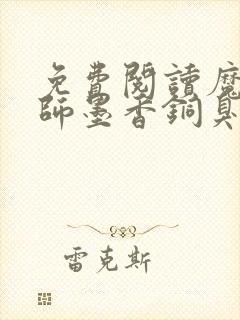 免費閱讀魔
師墨香銅臭
雷克斯